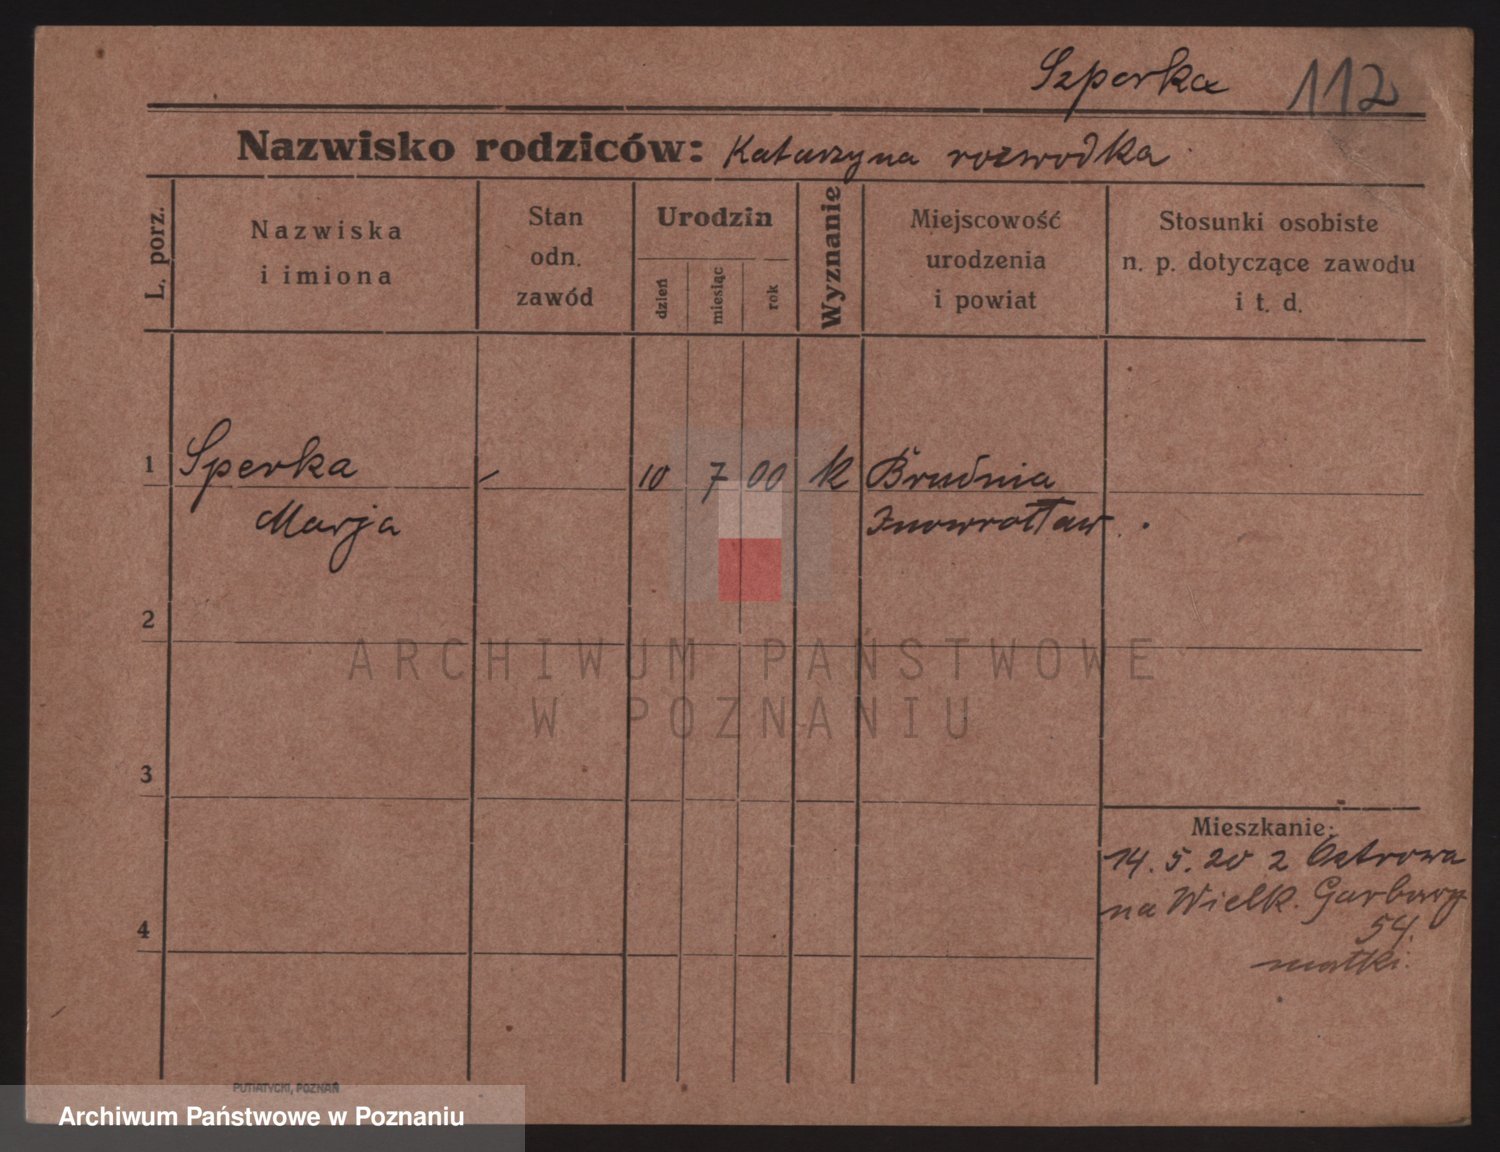 Szperka 112
Nazwisko rodziców: Katarzyna rozwodka
L. porz.
Nazwiska
i imiona
Stan
odn.
zawód
Urodzin
dzień
miesiąc
rok
Wyznanie
Miejscowość
urodzenia
i powiat
Stosunki osobiste
n. p. dotyczące zawodu
i t. d.
1 Sperka - 10 7 00 k Brudnia
Marja Inowrocław.
2
ARCHIWUM PAŃSTWOWE
W POZNANIU
3
Mieszkanie:
14. 5. 20 z Ostrowa
na Wielk. Garbary
54.
matki.
4
PUTIATYCKI, POZNAŃ
Archiwum Państwowe w Poznaniu